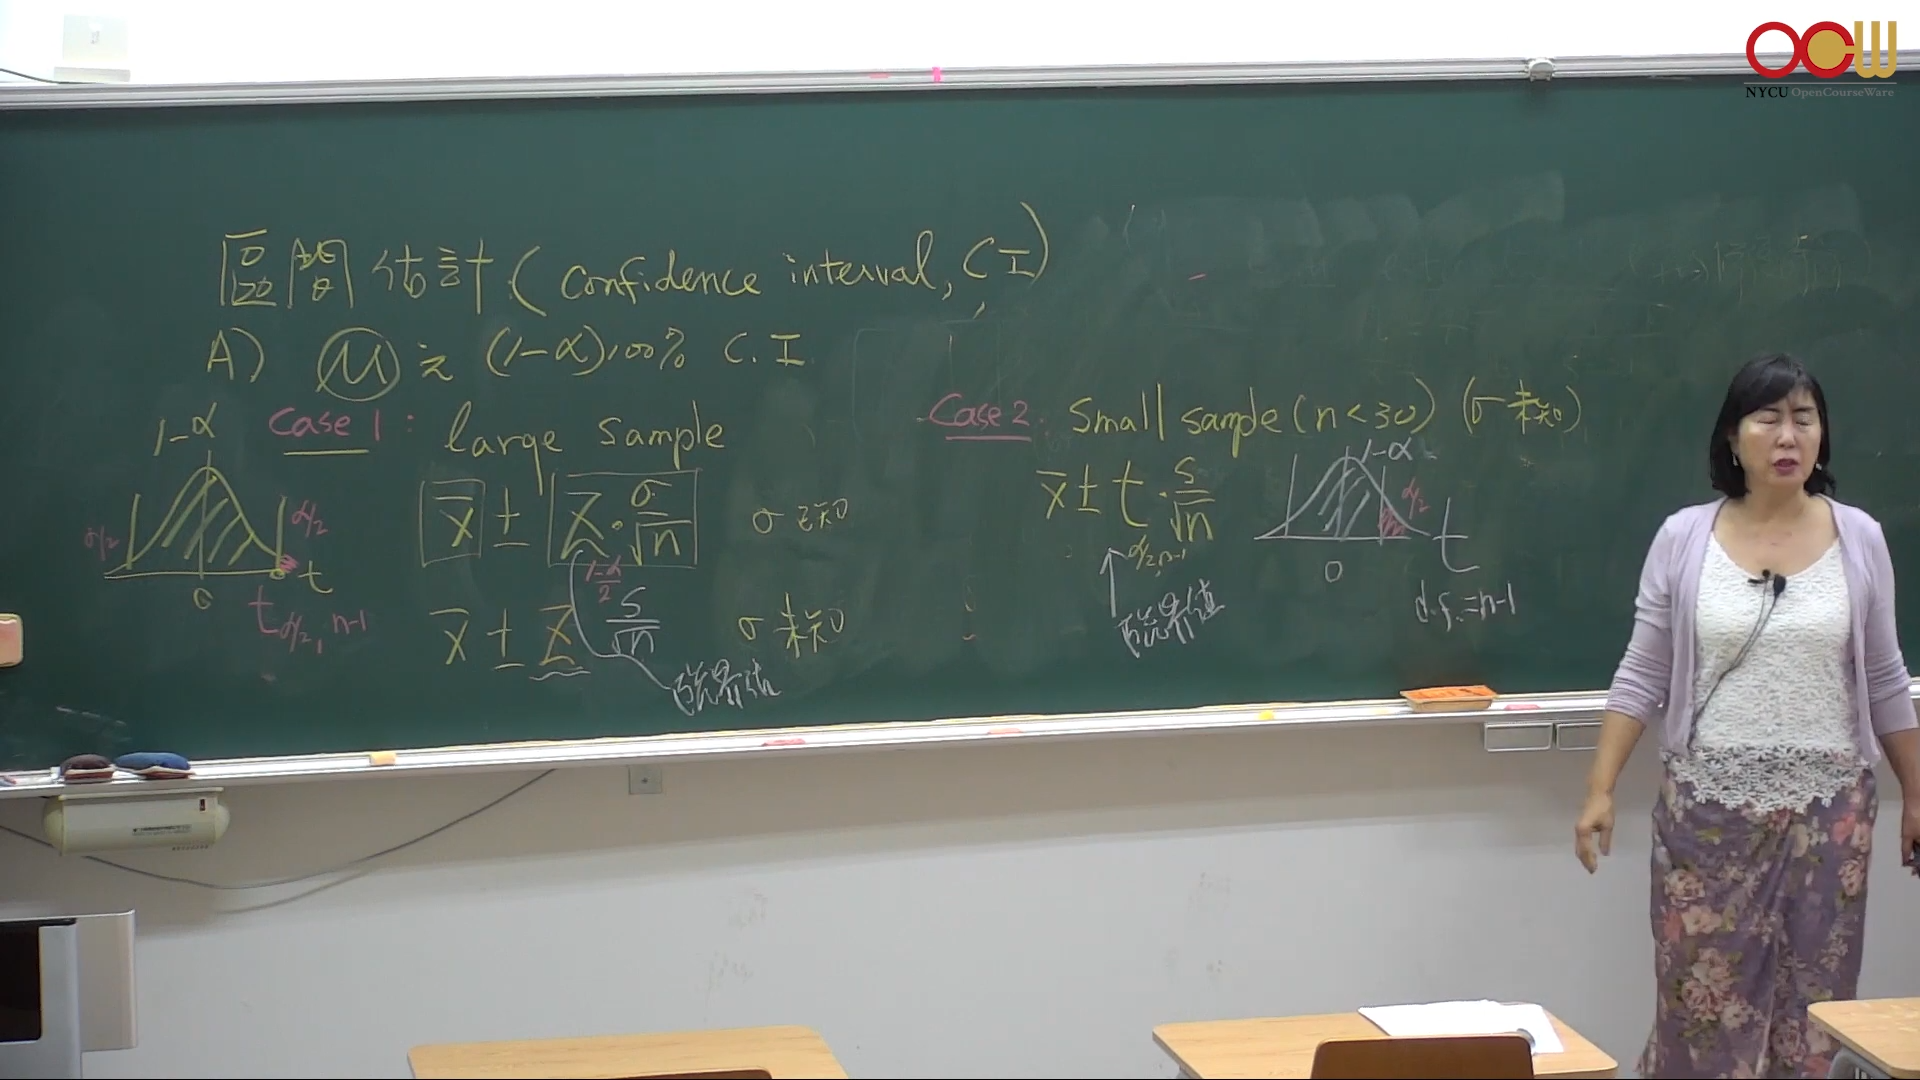 OCW
NYCU OpenCourseWare
區間估計 (confidence interval, CI)
A) μ 之 (1-α)100% C.I.
Case 1: large sample
1-α
α/2
α/2
0
t
t α/2, n-1
x̄ ± Z · σ/√n σ已知
1-α/2
x̄ ± Z S/√n σ未知
臨界值
Case 2. Small sample (n<30) (σ未知)
x̄ ± t · S/√n
α/2, n-1
臨界值
1-α
α/2
0
t
d.f.=n-1